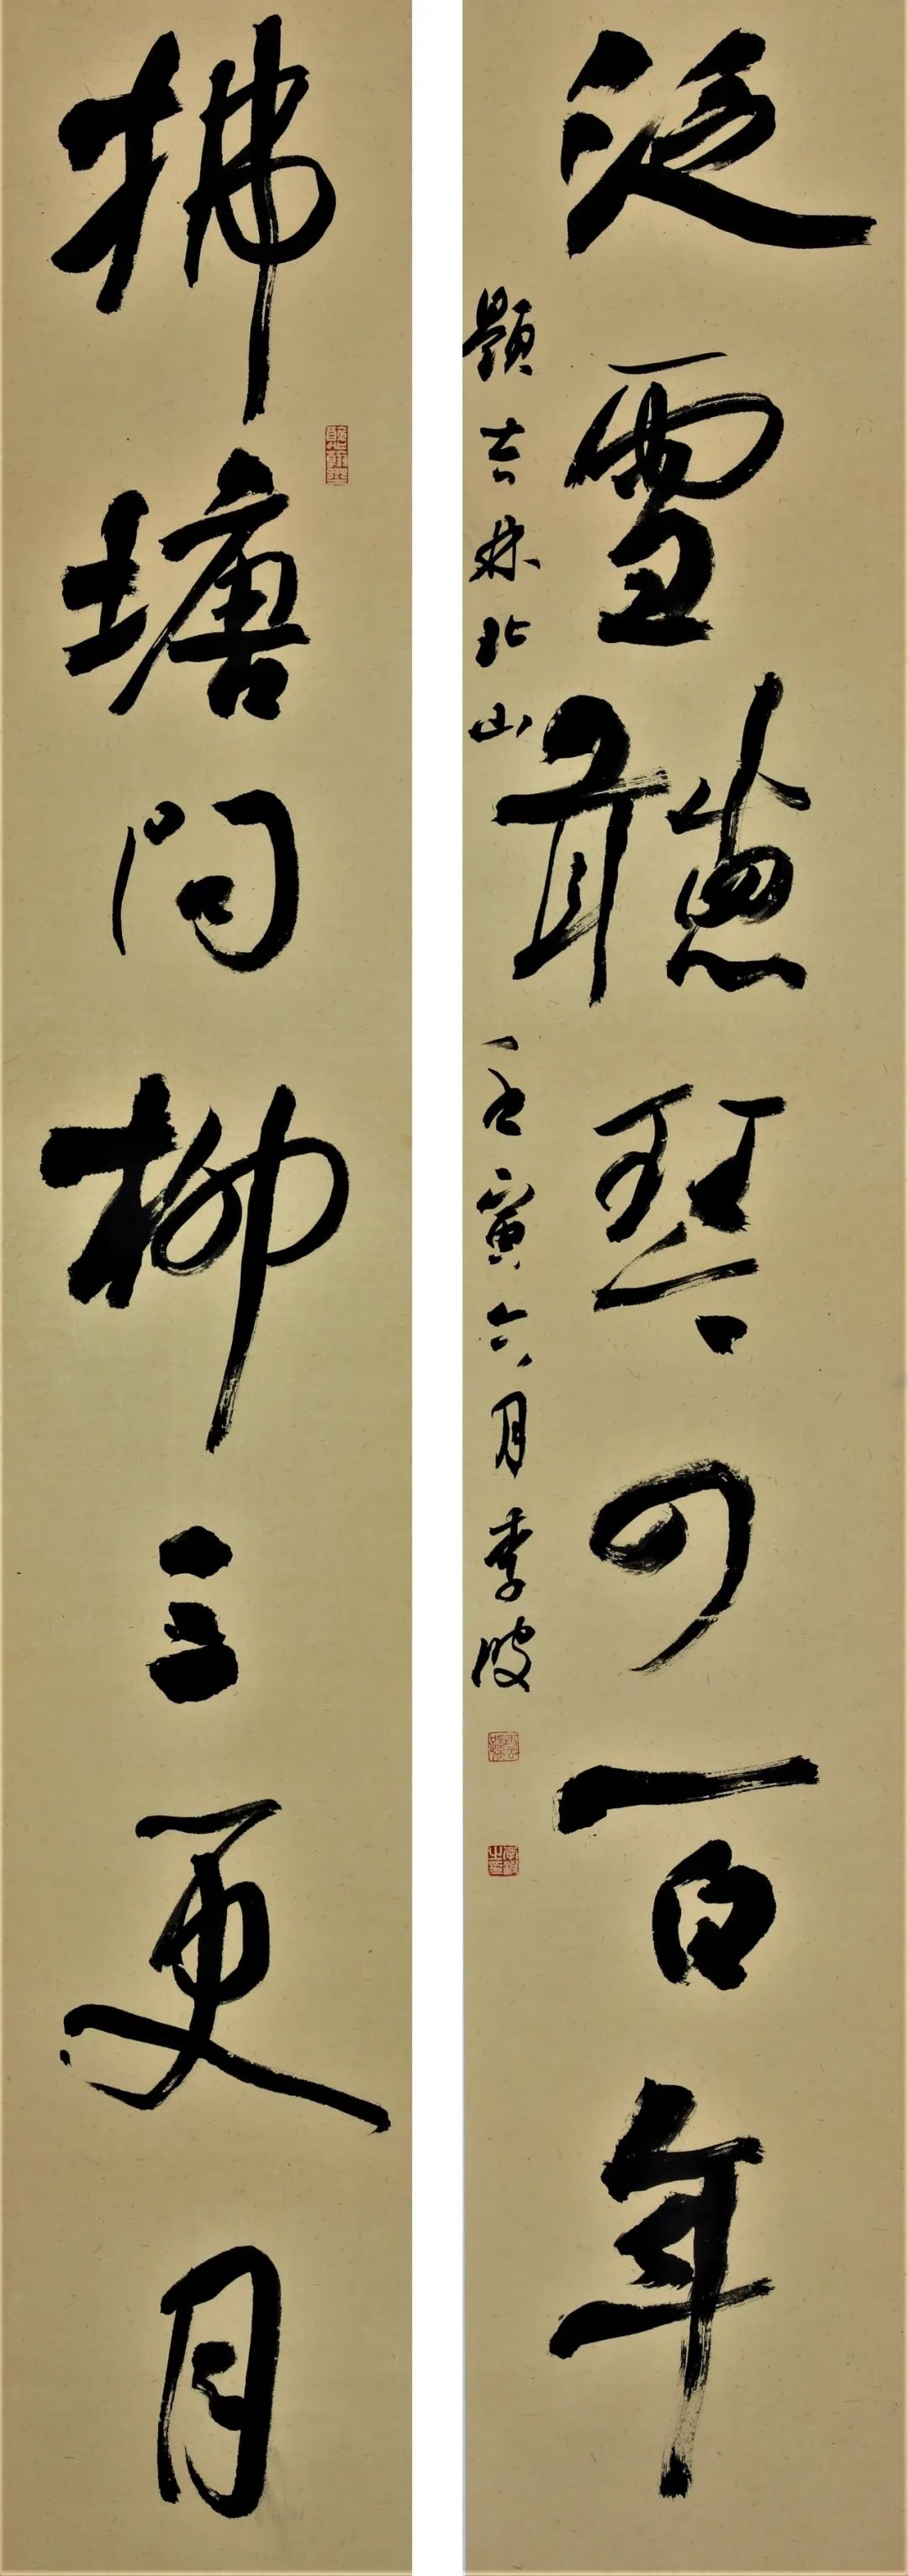 泛雪聽琴可百年
題吉林北山 壬寅六月李波
拂塘問柳三更月